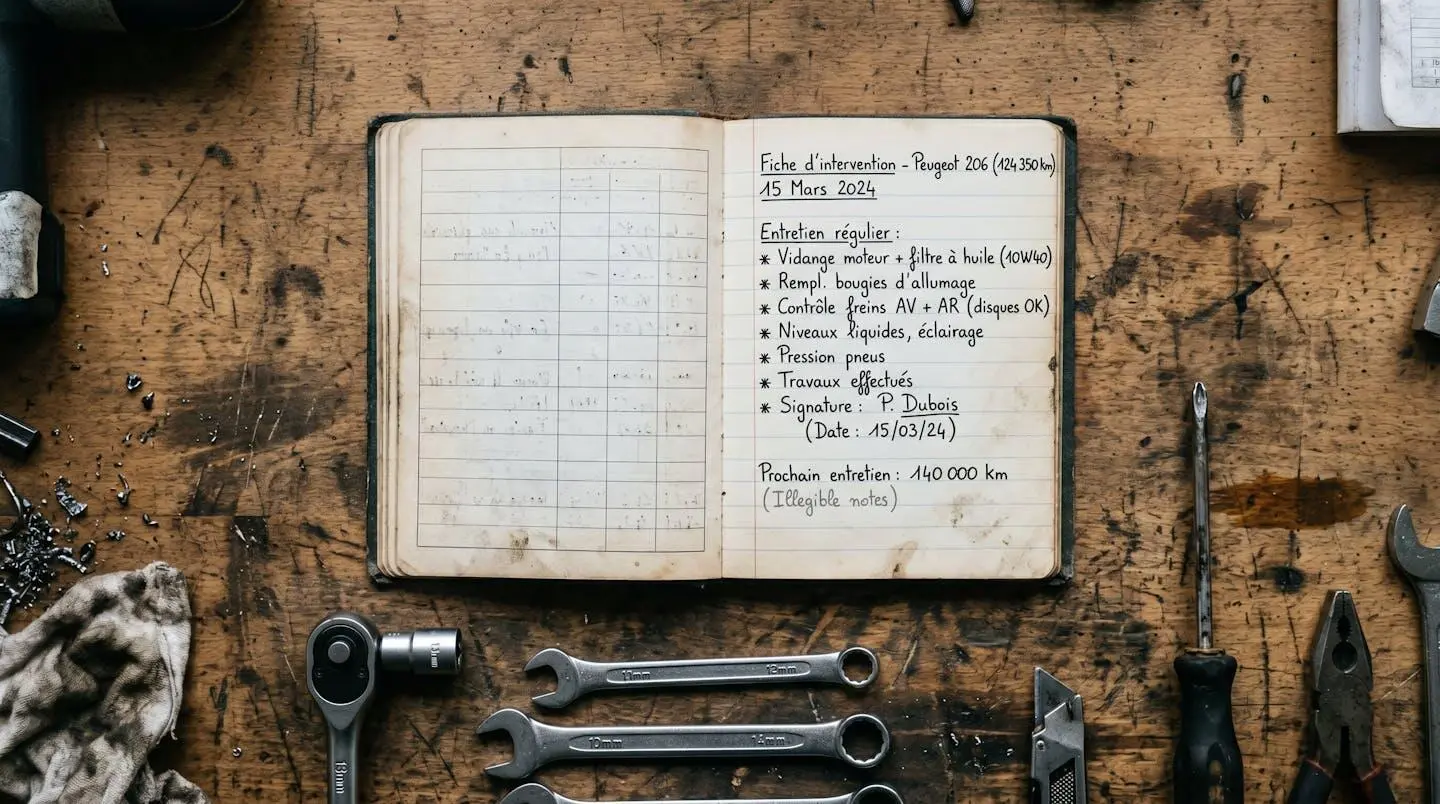 Fiche d'intervention - Peugeot 206 (124 350 km)
15 Mars 2024
Entretien régulier :
* Vidange moteur + filtre à huile (10W40)
* Rempl. bougies d'allumage
* Contrôle freins AV + AR (disques OK)
* Niveaux liquides, éclairage
* Pression pneus
* Travaux effectués
* Signature : P. Dubois
(Date : 15/03/24)
Prochain entretien : 140 000 km
(Illegible notes)
13mm
11mm 12mm
10mm 14mm